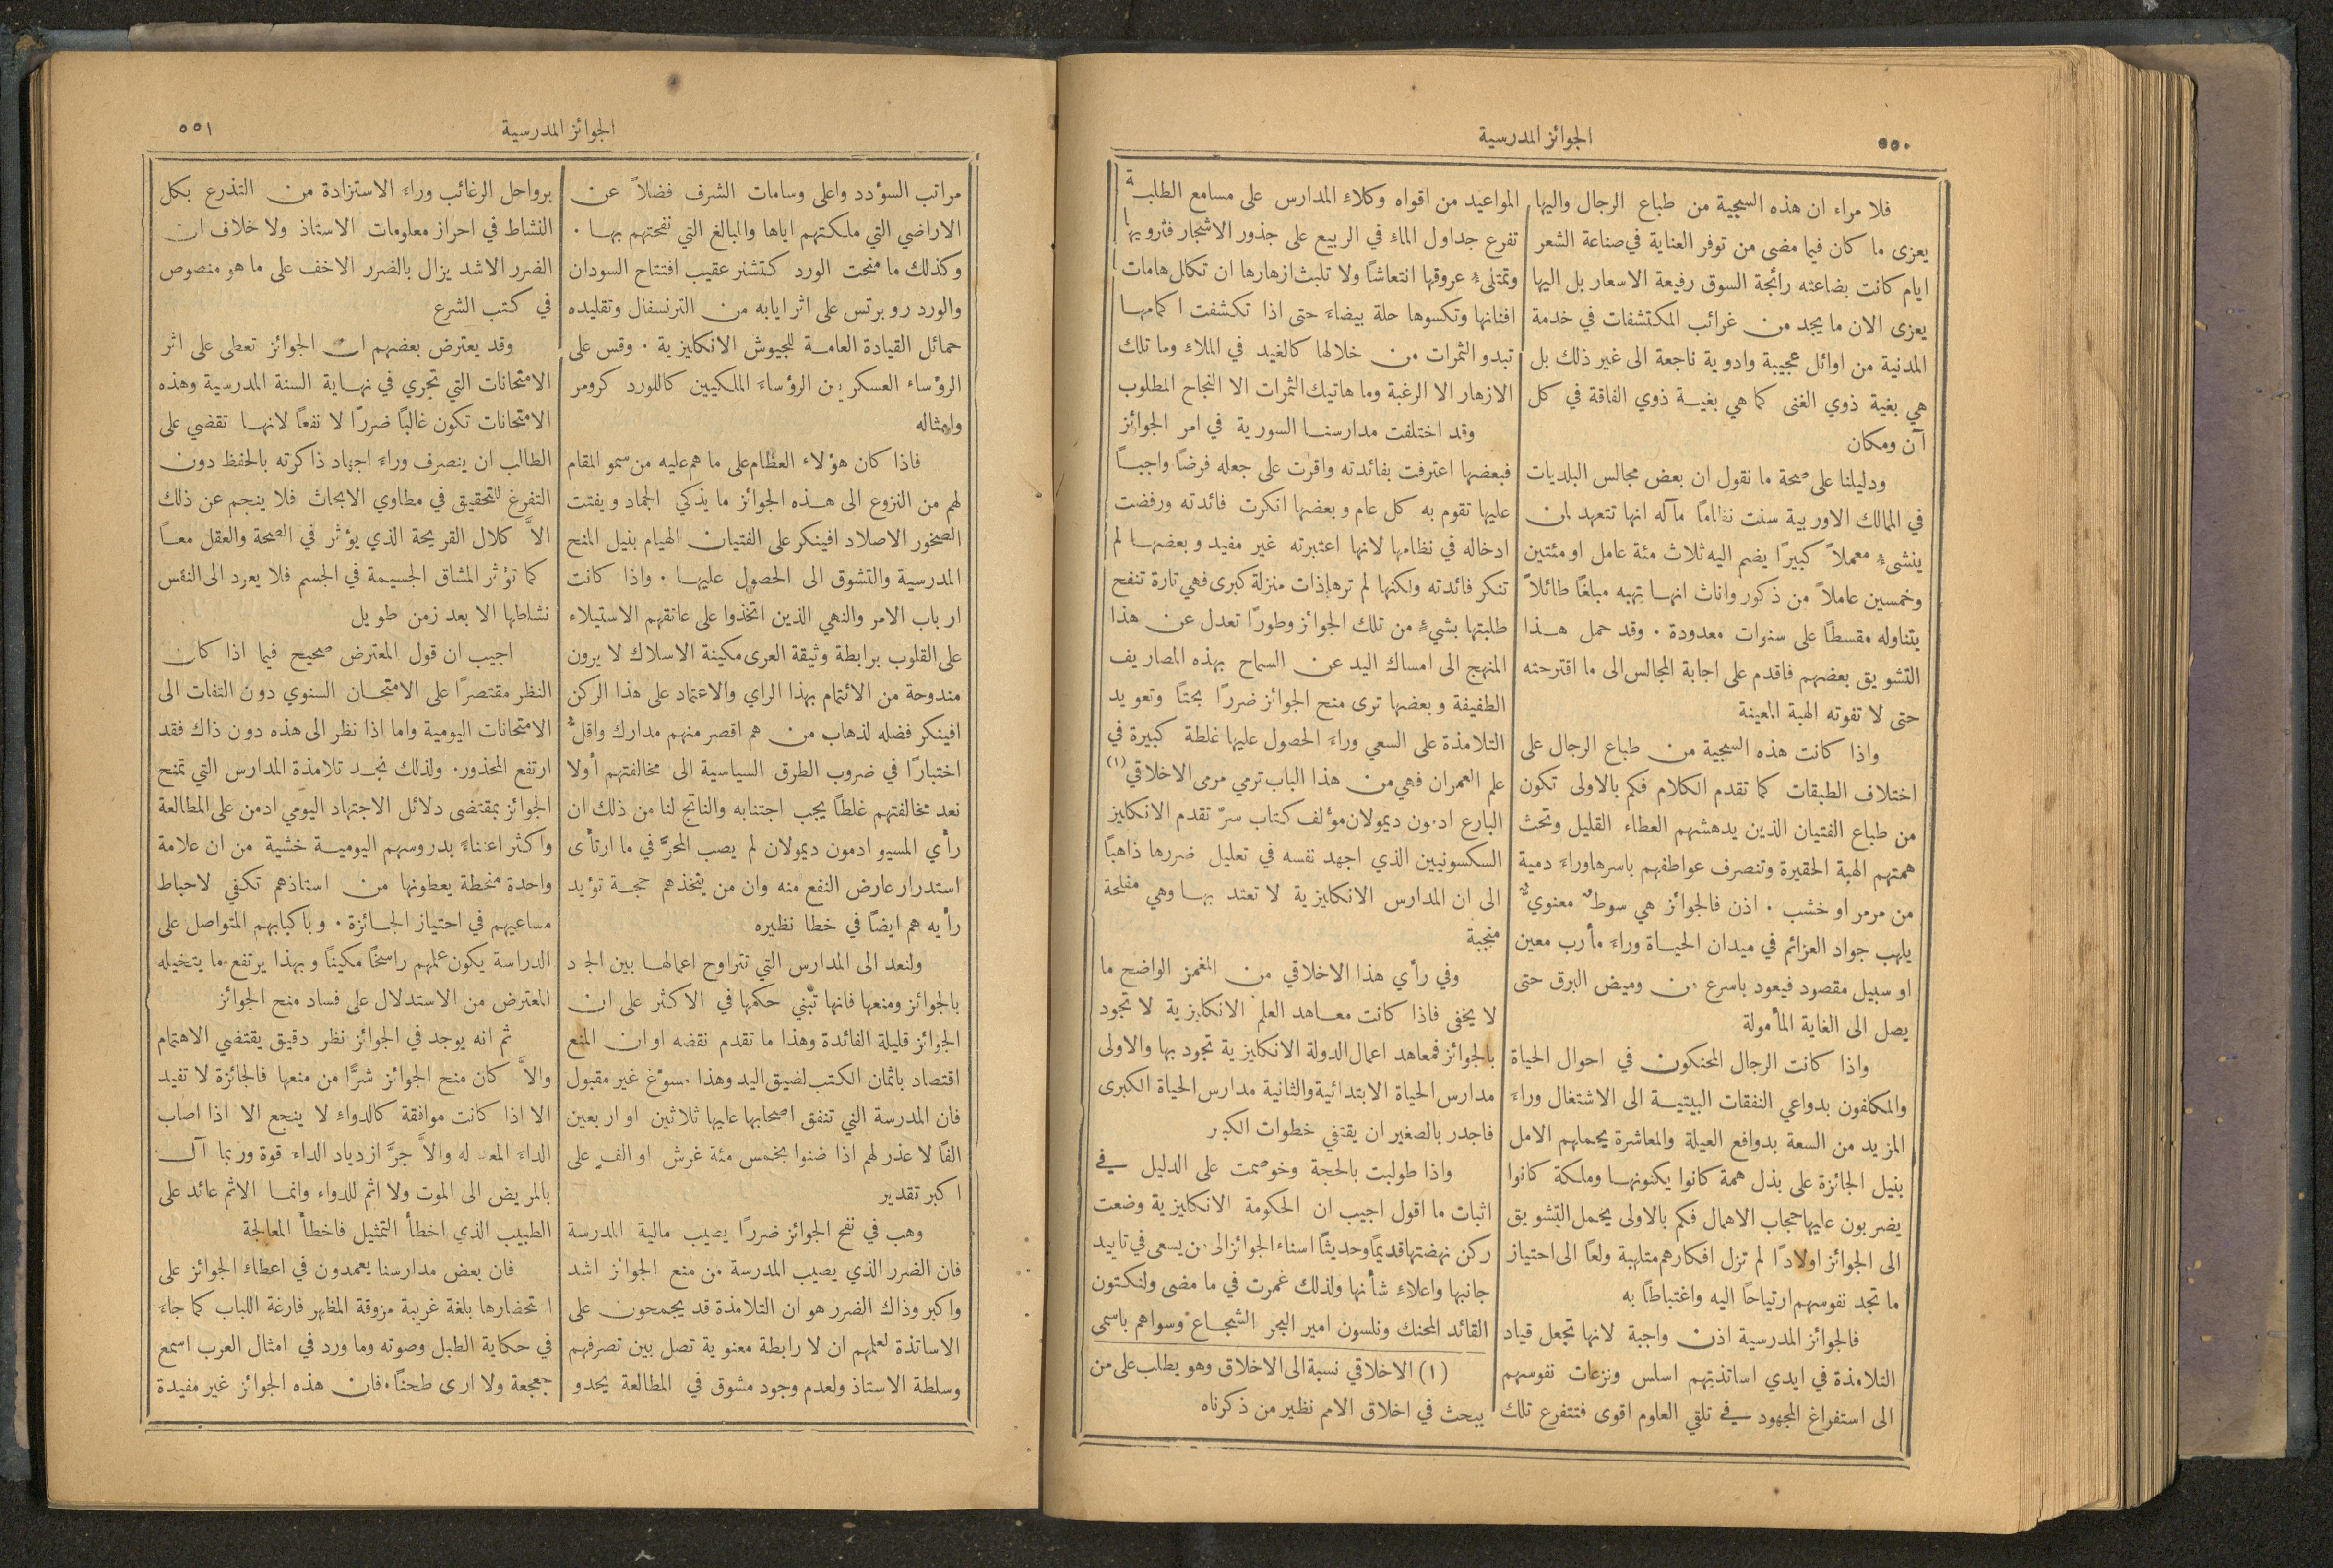 ٥٥٠
الجوائز المدرسية
فلا مراء ان هذه السجية من طباع الرجال واليها
يعزى ما كان فيما مضى من توفر العناية في صناعة الشعر
ايام كانت بضاعته رائجة السوق رفيعة الاسعار بل اليها
يعزى الان ما يجد من غرائب المكتشفات في خدمة
المدنية من اوائل عجيبة وادوية ناجعة الى غير ذلك بل
هي بغية ذوي الغنى كما هي بغية ذوي الفاقة في كل
آن ومكان
ودليلنا على صحة ما نقول ان بعض مجالس البلديات
في الممالك الاوربية سنت نظامًا مآله انها تتعهد لمن
ينشىء معملاً كبيرًا يضم اليه ثلاث مئة عامل او مئتين
وخمسين عاملاً من ذكور واناث انها تهبه مبلغًا طائلاً
يتناوله مقسطًا على سنوات معدودة . وقد حمل هذا
التشويق بعضهم فاقدم على اجابة المجالس الى ما اقترحته
حتى لا تفوته الهبة المعينة
واذا كانت هذه السجية من طباع الرجال على
اختلاف الطبقات كما تقدم الكلام فكم بالاولى تكون
من طباع الفتيان الذين يدهشهم العطاء القليل وتحث
همتهم الهبة الحقيرة وتنصرف عواطفهم باسرها وراء دمية
من مرمر او خشب . اذن فالجوائز هي سوطٌ معنويٌّ
يلهب جواد العزائم في ميدان الحياة وراء مأرب معين
او سبيل مقصود فيعود باسرع من وميض البرق حتى
يصل الى الغاية المأمولة
واذا كانت الرجال المحنكون في احوال الحياة
والمكلفون بدواعي النفقات البيتية الى الاشتغال وراء
المزيد من السعة بدوافع العيلة والمعاشرة يحملهم الامل
بنيل الجائزة على بذل همة كانوا يكنونها وملكة كانوا
يضربون عليها حجاب الاهمال فكم بالاولى يحمل التشويق
الى الجوائز اولادًا لم تزل افكارهم متلهبة ولعًا الى احتياز
ما تجد نفوسهم ارتياحًا اليه واغتباطًا به
فالجوائز المدرسية اذن واجبة لانها تجعل قياد
التلامذة في ايدي اساتذتهم اسلس ونزعات نفوسهم
الى استفراغ المجهود في تلقي العلوم اقوى فتتفرع تلك
المواعيد من افواه وكلاء المدارس على مسامع الطلبة
تفرع جداول الماء في الربيع على جذور الاشجار فترويها
وتمتلىء عروقها انتعاشًا ولا تلبث ازهارها ان تكلل هامات
افنانها وتكسوها حلة بيضاء حتى اذا تكشفت اكمامها
تبدو الثمرات من خلالها كالغيد في الملاء وما تلك
الازهار الا الرغبة وما هاتيك الثمرات الا النجاح المطلوب
وقد اختلفت مدارسنا السورية في امر الجوائز
فبعضها اعترفت بفائدته واقرت على جعله فرضًا واجبًا
عليها تقوم به كل عام وبعضها انكرت فائدته ورفضت
ادخاله في نظامها لانها اعتبرته غير مفيد وبعضها لم
تنكر فائدته ولكنها لم ترها ذات منزلة كبرى فهي تارة تنفح
طلبتها بشيءٍ من تلك الجوائز وطورًا تعدل عن هذا
المنهج الى امساك اليد عن السماح بهذه المصاريف
الطفيفة وبعضها ترى منح الجوائز ضررًا بحتًا وتعويد
التلامذة على السعي وراء الحصول عليها غلطة كبيرة في
علم العمران فهي من هذا الباب ترمي مرمى الاخلاقي (١)
البارع ادمون ديمولان مؤلف كتاب سرّ تقدم الانكليز
السكسونيين الذي اجهد نفسه في تعليل ضررها ذاهبًا
الى ان المدارس الانكليزية لا تعتد بها وهي مفلحة
منجبة
وفي رأي هذا الاخلاقي من المغمز الواضح ما
لا يخفى فاذا كانت معاهد العلم الانكليزية لا تجود
بالجوائز فمعاهد اعمال الدولة الانكليزية تجود بها والاولى
مدارس الحياة الابتدائية والثانية مدارس الحياة الكبرى
فاجدر بالصغير ان يقتفي خطوات الكبير
واذا طولبت بالحجة وخوصمت على الدليل في
اثبات ما اقول اجيب ان الحكومة الانكليزية وضعت
ركن نهضتها قديمًا وحديثًا اسناء الجوائز الى من يسعى في تاييد
جانبها واعلاء شأنها ولذلك غمرت في ما مضى ولنكتون
القائد المحنك ونلسون امير البحر الشجاع وسواهم باسمى
(١) الاخلاقي نسبة الى الاخلاق وهو يطلب على من
يبحث في اخلاق الامم نظير من ذكرناه
الجوائز المدرسية
٥٥١
مراتب السؤدد واعلى وسامات الشرف فضلاً عن
الاراضي التي ملكتهم اياها والمبالغ التي نفحتهم بها .
وكذلك ما منحت الورد كتشنر عقيب افتتاح السودان
والورد روبرتس على اثر ايابه من الترنسفال وتقليده
حمائل القيادة العامة للجيوش الانكليزية . وقس على
الرؤساء العسكريين الرؤساء الملكيين كاللورد كرومر
وامثاله
فاذا كان هؤلاء العظام على ما هم عليه من سمو المقام
لهم من النزوع الى هذه الجوائز ما يذكي الجماد ويفتت
الصخور الاصلاد افينكر على الفتيان الهيام بنيل المنح
المدرسية والتشوق الى الحصول عليها . واذا كانت
ارباب الامر والنهي الذين اتخذوا على عاتقهم الاستيلاء
على القلوب برابطة وثيقة العرى مكينة الاسلاك لا يرون
مندوحة من الائتمام بهذا الراي والاعتماد على هذا الركن
افينكر فضله لذهاب من هم اقصر منهم مدارك واقلّ
اختبارًا في ضروب الطرق السياسية الى مخالفتهم أولا
نعد مخالفتهم غلطًا يجب اجتنابه والناتج لنا من ذلك ان
رأي المسيو ادمون ديمولان لم يصب المحزَّ في ما ارتأى
استدرار عارض النفع منه وان من يتخذهم حجة تؤيد
رأيه هم ايضًا في خطا نظيره
ولنعد الى المدارس التي تتراوح اعمالها بين الجود
بالجوائز ومنعها فانها تبني حكمها في الاكثر على ان
الجوائز قليلة الفائدة وهذا ما تقدم نقضه او ان المنع
اقتصاد باثمان الكتب لضيق اليد وهذا مسوّغ غير مقبول
فان المدرسة التي تنفق اصحابها عليها ثلاثين او اربعين
الفًا لا عذر لهم اذا ضنوا بخمس مئة غرش او الفٍ على
اكبر تقدير
وهب في نفح الجوائز ضررًا يصيب مالية المدرسة
فان الضرر الذي يصيب المدرسة من منع الجوائز اشد
واكبر وذاك الضرر هو ان التلامذة قد يجمحون على
الاساتذة لعلمهم ان لا رابطة معنوية تصل بين تصرفهم
وسلطة الاستاذ ولعدم وجود مشوق في المطالعة يحدو
برواحل الرغائب وراء الاستزادة من التذرع بكل
النشاط في احراز معلومات الاستاذ ولا خلاف ان
الضرر الاشد يزال بالضرر الاخف على ما هو منصوص
في كتب الشرع
وقد يعترض بعضهم ان الجوائز تعطى على اثر
الامتحانات التي تجري في نهاية السنة المدرسية وهذه
الامتحانات تكون غالبًا ضررًا لا نفعًا لانها تقضي على
الطالب ان ينصرف وراء اجهاد ذاكرته بالحفظ دون
التفرغ للتحقيق في مطاوي الابحاث فلا ينجم عن ذلك
الاَّ كلال القريحة الذي يؤثر في الصحة والعقل معًا
كما تؤثر المشاق الجسيمة في الجسم فلا يعود الى النفس
نشاطها الا بعد زمن طويل
اجيب ان قول المعترض صحيح فيما اذا كان
النظر مقتصرًا على الامتحان السنوي دون التفات الى
الامتحانات اليومية واما اذا نظر الى هذه دون ذاك فقد
ارتفع المحذور. ولذلك نجد تلامذة المدارس التي تمنح
الجوائز بمقتضى دلائل الاجتهاد اليومي ادمن على المطالعة
واكثر اعتناءً بدروسهم اليومية خشية من ان علامة
واحدة منحطة يعطونها من استاذهم تكفي لاحباط
مساعيهم في احتياز الجائزة . وباكبابهم المتواصل على
الدراسة يكون علمهم راسخًا مكينًا وبهذا يرتفع ما يتخيله
المعترض من الاستدلال على فساد منح الجوائز
ثم انه يوجد في الجوائز نظر دقيق يقتضي الاهتمام
والاَّ كان منح الجوائز شرًّا من منعها فالجائزة لا تفيد
الا اذا كانت موافقة كالدواء لا ينجع الا اذا اصاب
الداء المعد له والاَّ جرَّ ازدياد الداء قوة وربما آل
بالمريض الى الموت ولا اثم للدواء وانما الاثم عائد على
الطبيب الذي اخطأ التمثيل فاخطأ المعالجة
فان بعض مدارسنا يعمدون في اعطاء الجوائز على
استحضارها بلغة غريبة مزوقة المظهر فارغة اللباب كما جاء
في حكاية الطبل وصوته وما ورد في امثال العرب اسمع
جعجعة ولا ارى طحنًا . فان هذه الجوائز غير مفيدة